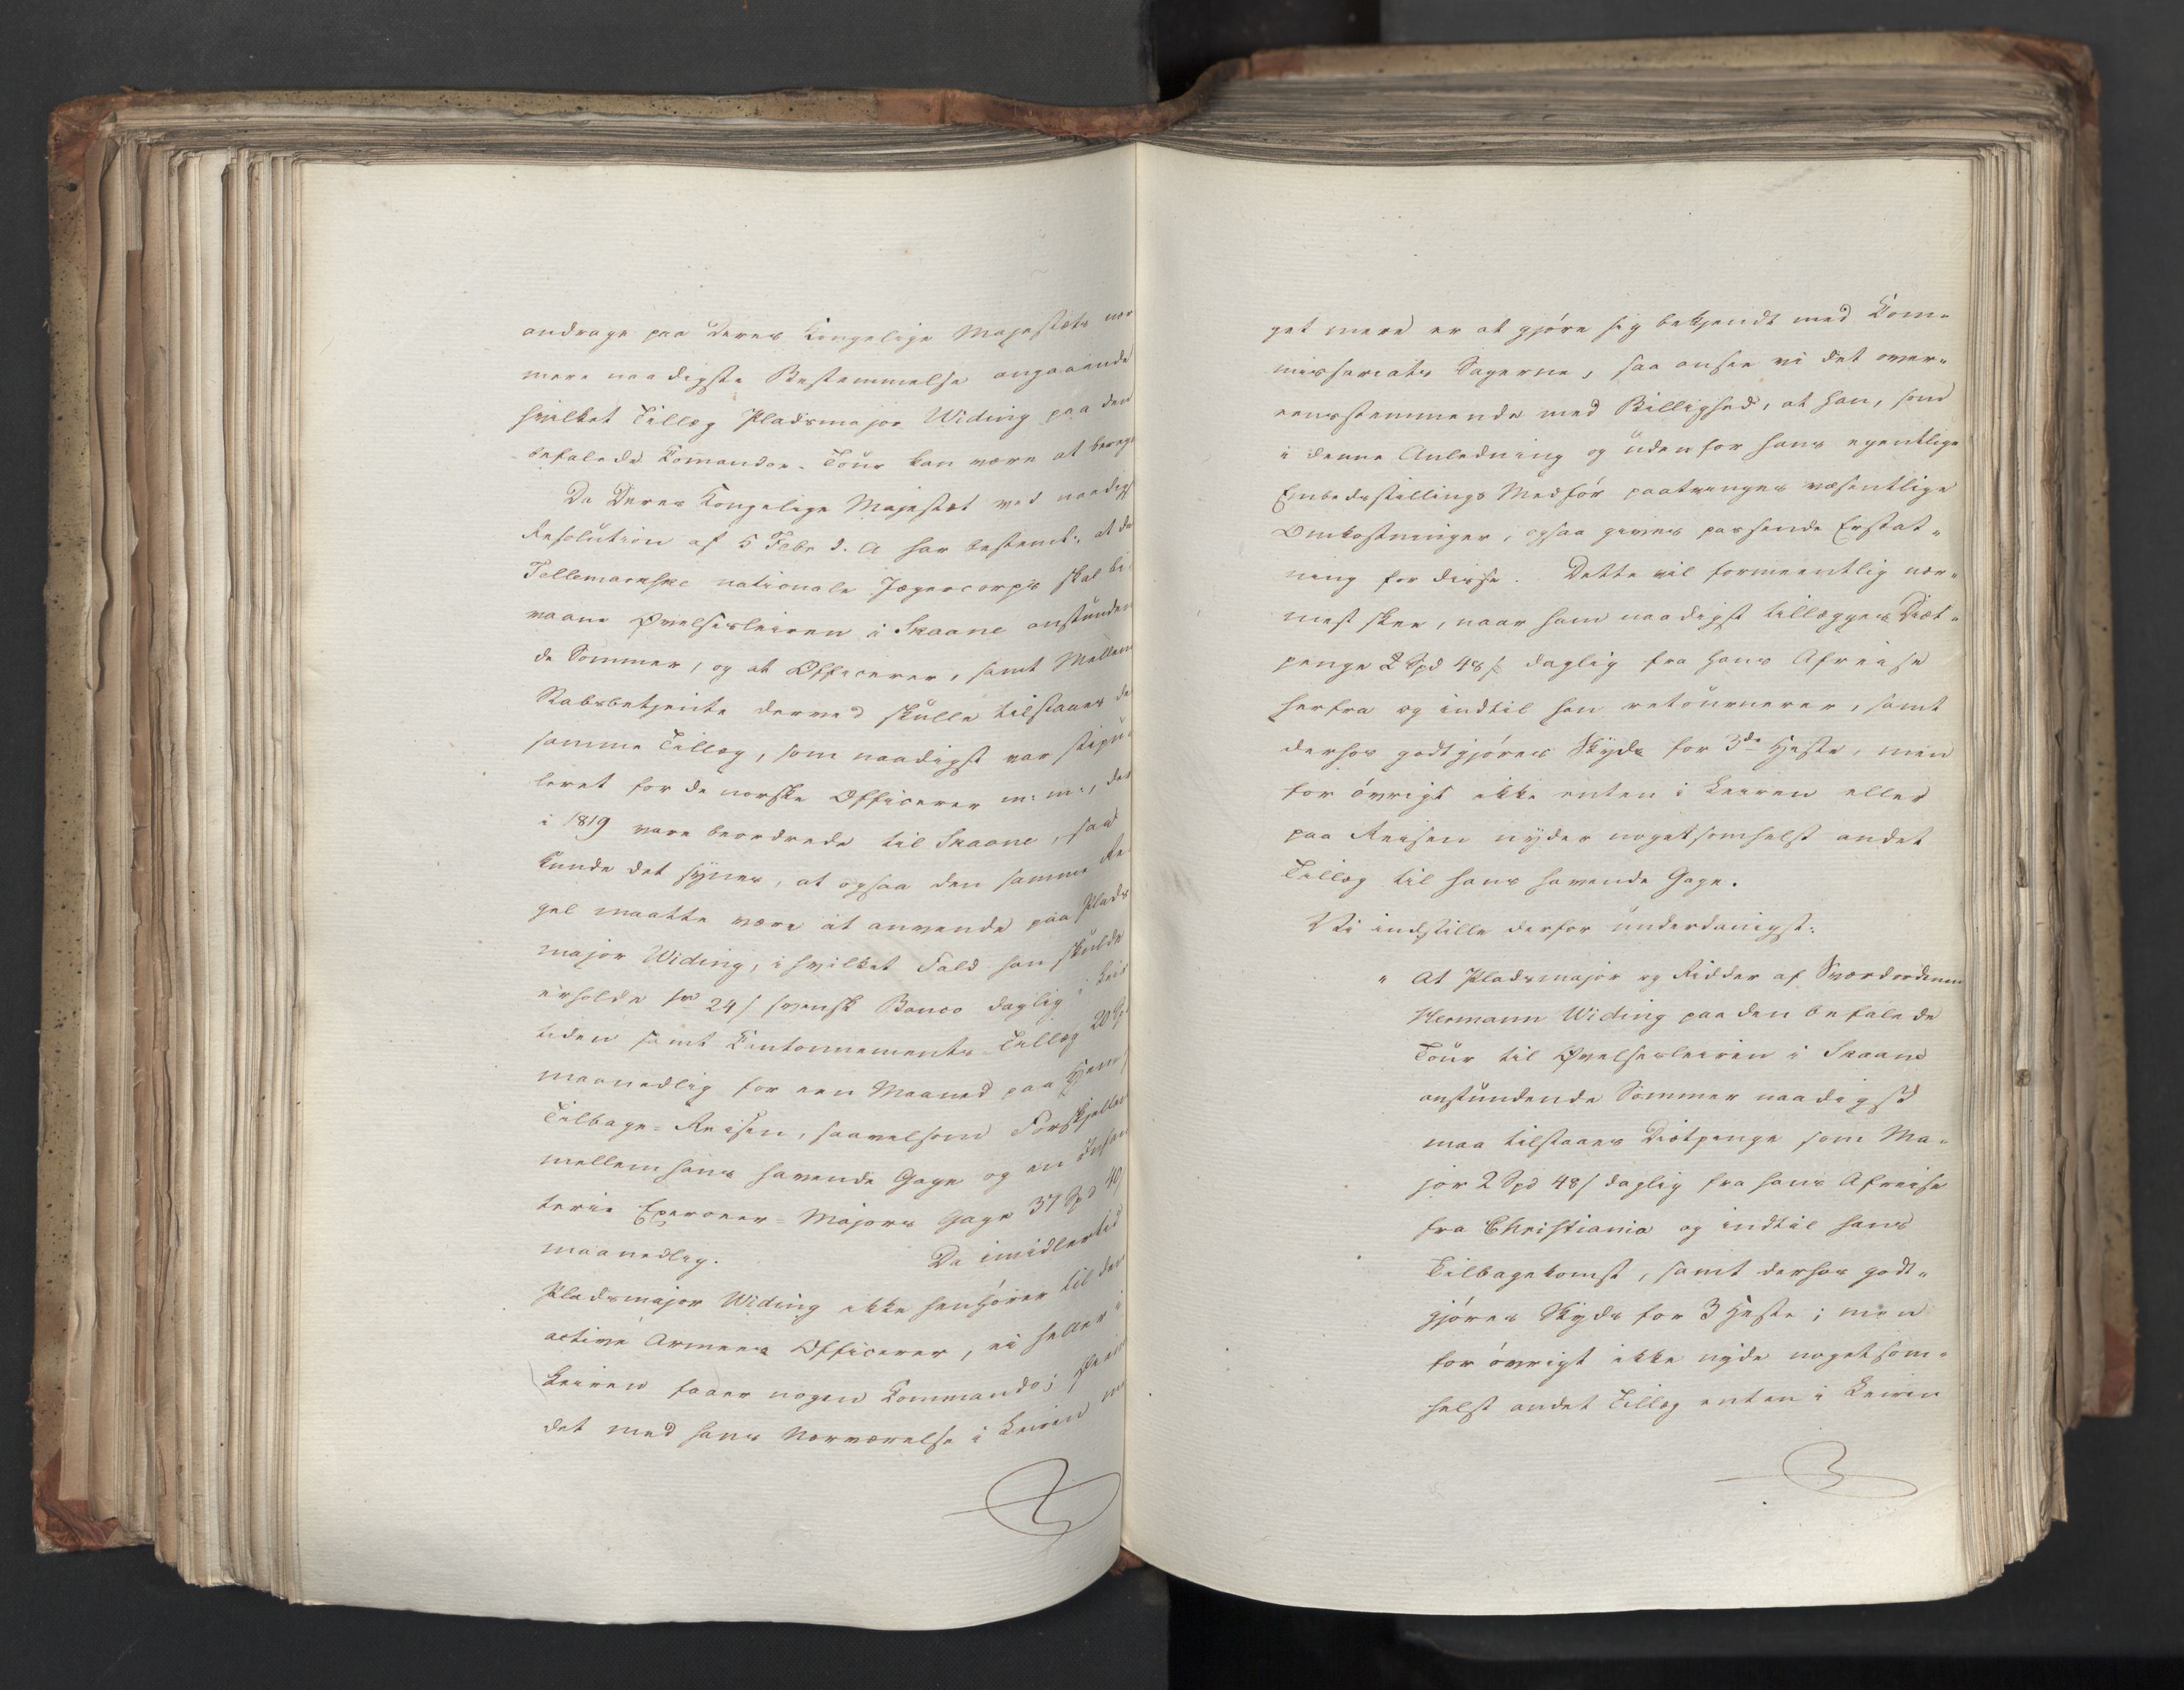 andrage paa Deres Kongelige Majestets nær
mere naadigste Bestemmelse angaaende
hvilket Tillæg Pladsmajor Widing paa den
befalede Comandoe-Tour kan være at bereg
Da Deres Kongelige Majestæt ved naadigst
Resolution af 5 Febr d. A har bestemt, at de
Tellemarkske nationale Jægercorps skal bi-
vaane Øvelsesleiren i Skaane anstunden
de Sommer, og at Officerer, samt Mellem
Stabsbetjente derved skulle tilstaaes de
samme Tillæg, som naadigst var stipu-
leret for de norske Officerer m: m:, der
i 1819 vare beordrede til Skaane, saa
kunde det synes, at ogsaa den samme Re-
gel maatte være at anvende paa Plads
major Widing, i hvilket Fald han skulde
erholde 24 s svensk Banco daglig i Leir
tiden samt Cantonnements-Tillæg 20 Sp
maanedlig for een Maaned paa Hen-/
Tilbage-Reisen, saavelsom Forskjellen
mellem hans havende Gage og en Infan
terie Exerceer-Majors Gage 37 Spd 40 s
maanedlig. Da imidlertid
Pladsmajor Widing ikke henhører til den
active Armees Officerer, ei heller i
Leiren faaer nogen Commando;
det med hans Nærværelse i Leiren
get mere er at gjøre sig bekjendt med Com-
missariats Sagerne, saa ansee vi det over-
eensstemmende med Billighed, at han, som
i denne Anledning og udenfor hans egentlige
Embedsstillings Medfør paatvinges væsentlige
Omkostninger, ogsaa gives passende Erstat-
ning for disse. Dette vil formeentlig nær-
mest skee, naar ham naadigst tillægges Diæt-
penge 2 Spd 48 s daglig fra hans Afreise
herfra og indtil han retournerer, samt
derhos godtgjøres Skyds for 3de Heste, men
for øvrigt ikke enten i Leiren eller
paa Reisen nyder nogetsomhelst andet
Tillæg til hans havende Gage.
Vi indstille derfor underdanigst:
" At Pladsmajor og Ridder af Sværdordenen
Hermann Widing paa den befalede
Tour til Øvelsesleiren i Skaane
anstundende Sommer naadigst
maa tilstaaes Diætpenge som Ma-
jor 2 Spd 48 s daglig fra hans Afreise
fra Christiania og indtil hans
Tilbagekomst, samt derhos godt-
gjøres Skyds for 3 Heste; men
for øvrigt ikke nyde nogetsom-
helst andet Tillæg enten i Leiren